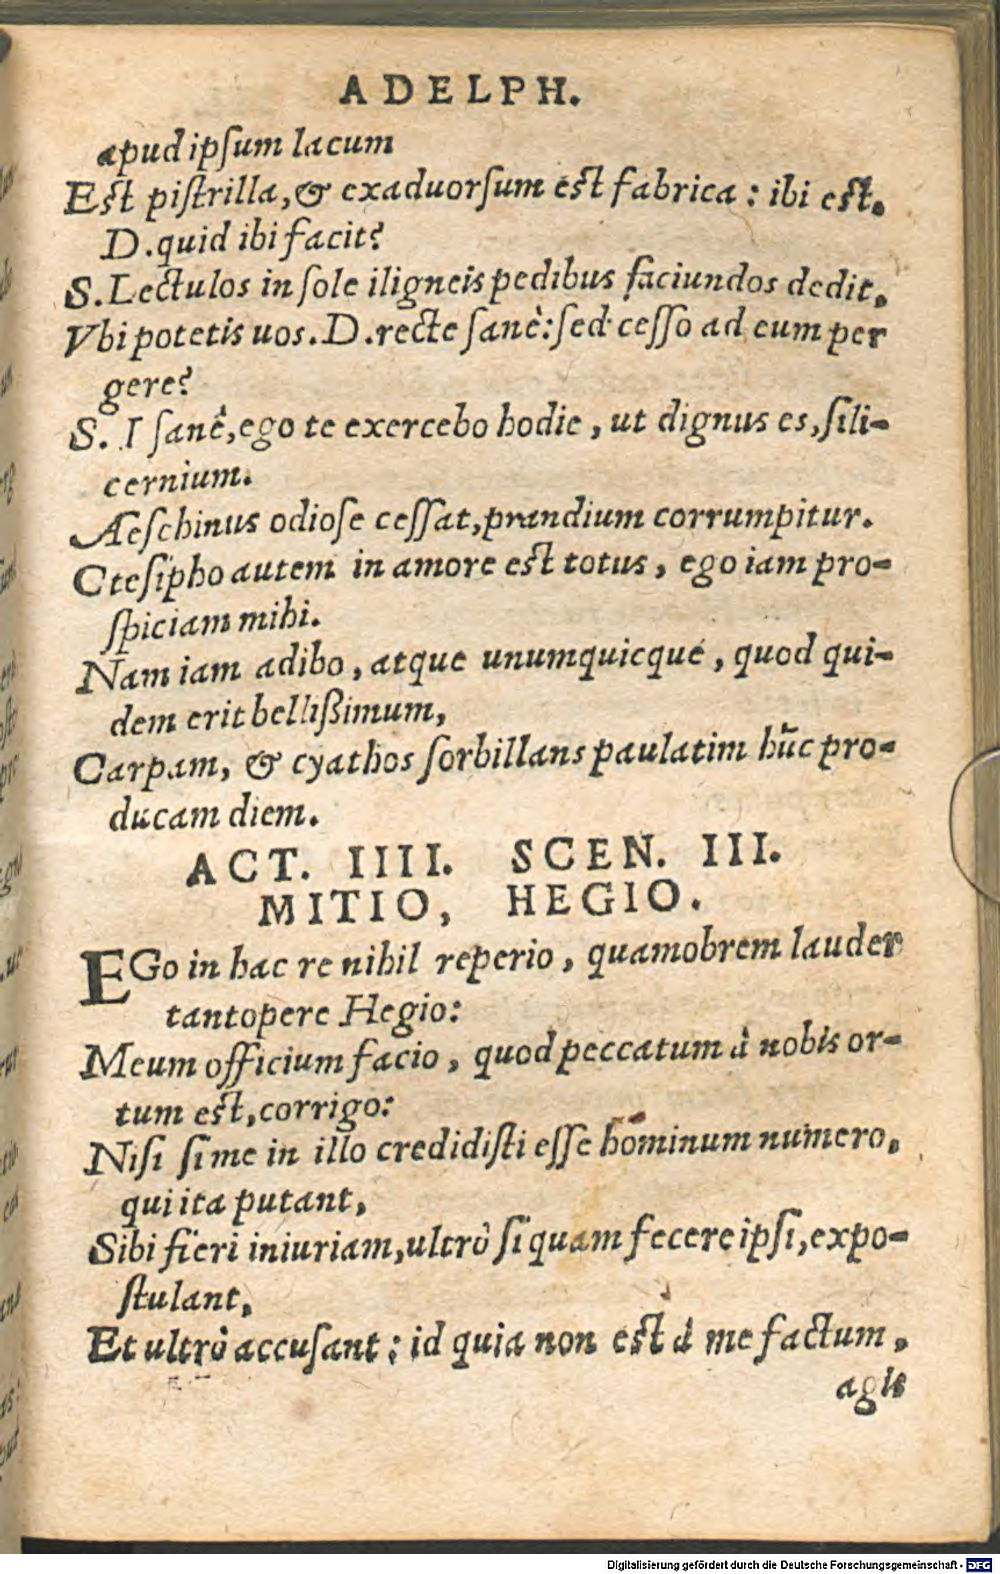 ADELPH.
apud ipſum lacum
Eſt piſtrilla, & exaduorſum eſt fabrica : ibi eſt.
D. quid ibi facit?
S. Lectulos in ſole iligneis pedibus faciundos dedit,
Vbi potetis uos. D. recte ſanè: ſed ceſſo ad eum per
gere?
S. I ſanè, ego te exercebo hodie, ut dignus es, ſili-
cernium.
Aeſchinus odioſe ceſſat, prandium corrumpitur.
Cteſipho autem in amore eſt totus, ego iam pro-
ſpiciam mihi.
Nam iam adibo, atque unumquicque, quod qui-
dem erit bellißimum,
Carpam, & cyathos ſorbillans paulatim hūc pro-
ducam diem.
ACT. IIII. SCEN. III.
MITIO, HEGIO.
EGo in hac re nihil reperio, quamobrem lauder
tantopere Hegio:
Meum officium facio, quod peccatum à nobis or-
tum eſt, corrigo:
Niſi ſi me in illo credidiſti eſſe hominum numero,
qui ita putant,
Sibi fieri iniuriam, ultrò ſi quam fecere ipſi, expo-
ſtulant,
Et ultrò accuſant : id quia non eſt à me factum,
agis
Digitalisierung gefördert durch die Deutsche Forschungsgemeinschaft - DFG